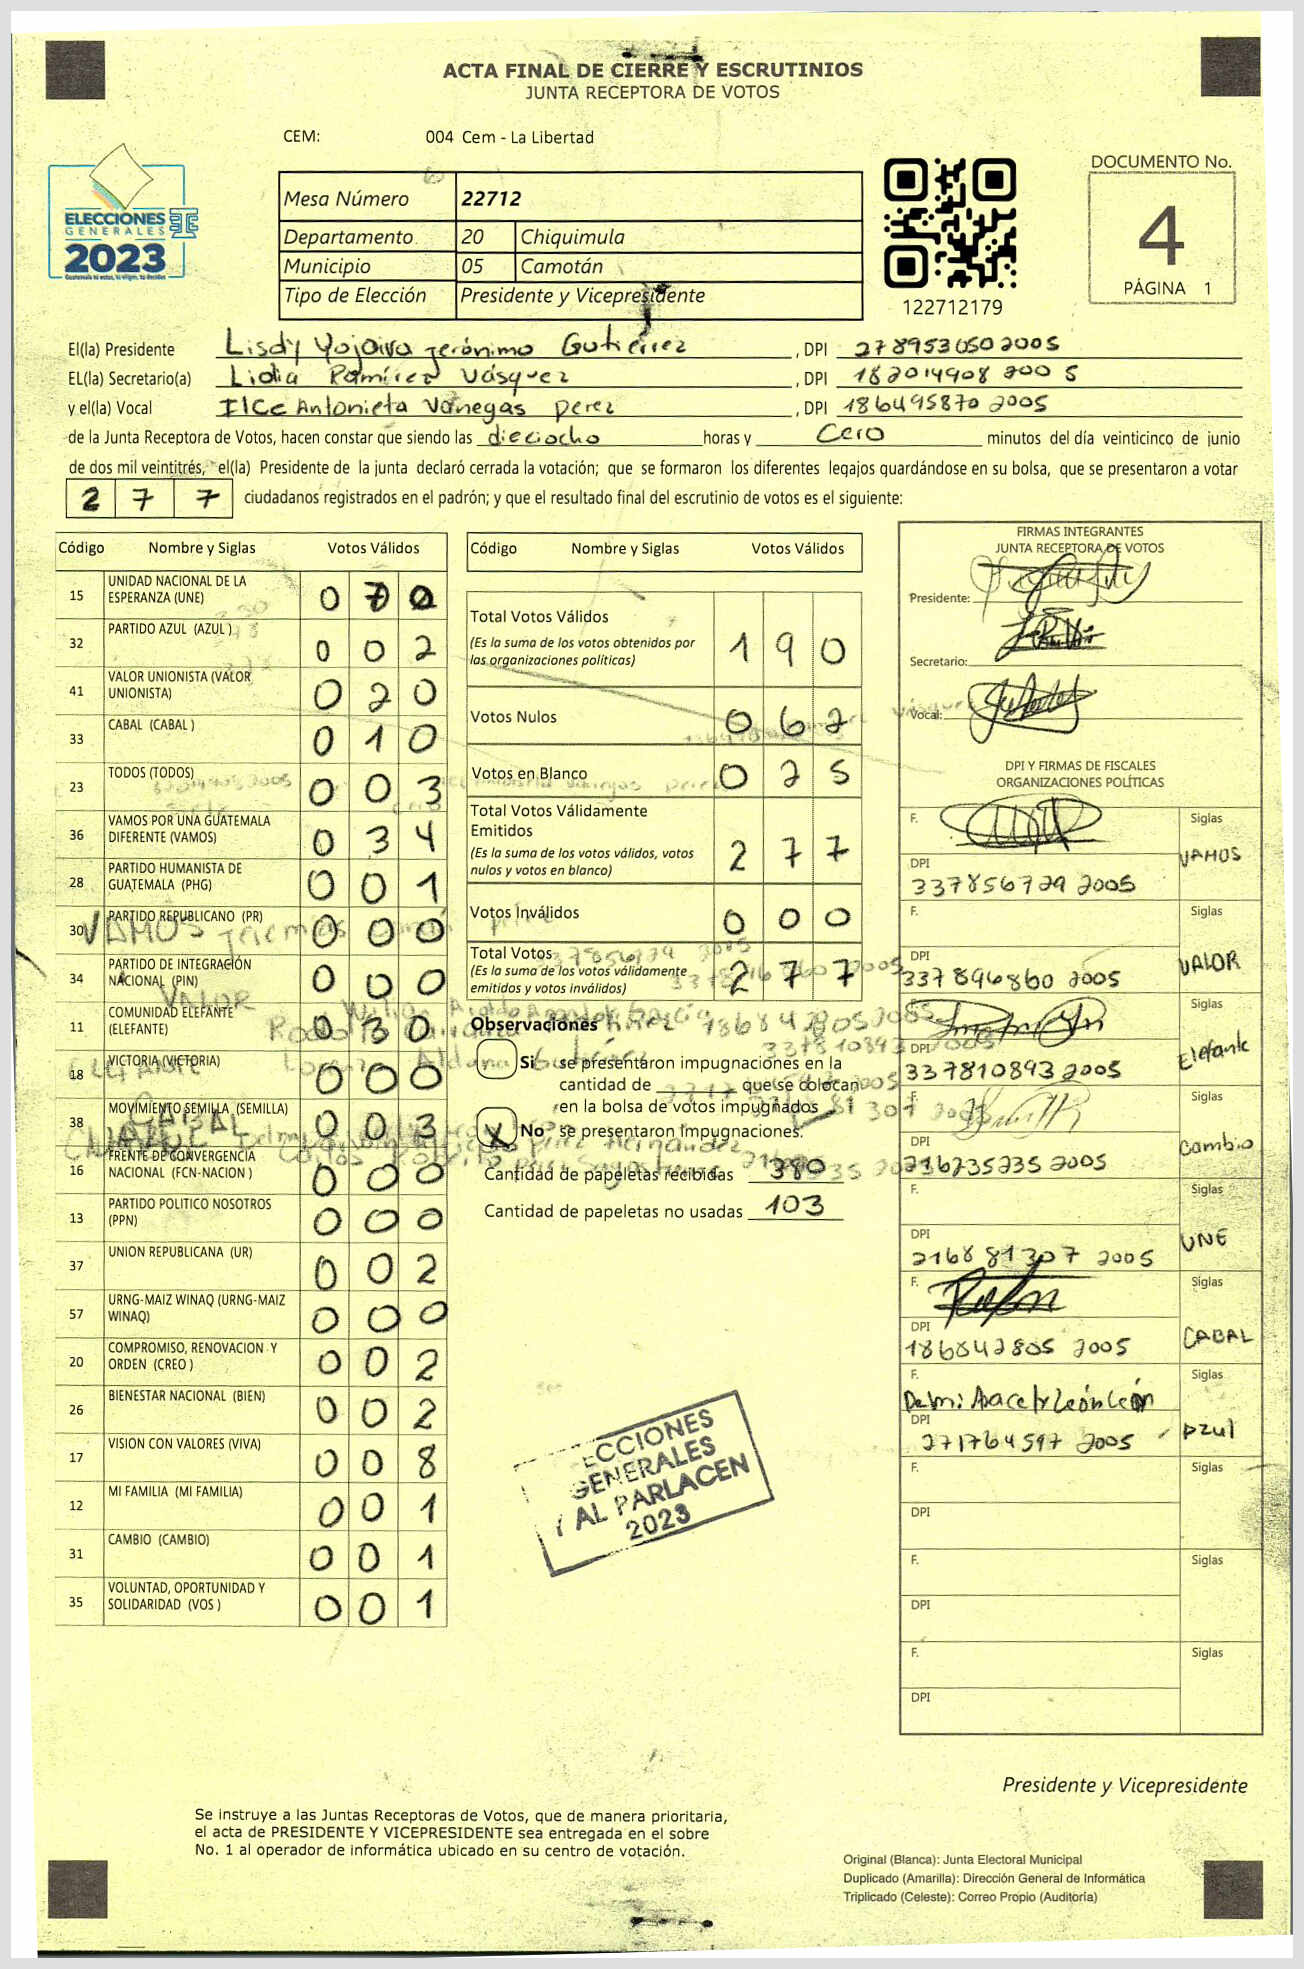 ACTA FINAL DE CIERRE Y ESCRUTINIOS
JUNTA RECEPTORA DE VOTOS
CEM: 004 Cem - La Libertad
ELECCIONES
GENERALES
2023
Mesa Número 22712
Departamento 20 Chiquimula
Municipio 05 Camotán
Tipo de Elección Presidente y Vicepresidente
122712179
DOCUMENTO No.
4
PÁGINA 1
El(la) Presidente Lisdy Yojaira Jerónimo Gutiérrez, DPI 278953050 2005
EL(la) Secretario(a) Lidia Ramírez Vásquez, DPI 182014908 2005
y el(la) Vocal Ilce Antonieta Vanegas perez, DPI 186495870 2005
de la Junta Receptora de Votos, hacen constar que siendo las dieciocho horas y Cero minutos del día veinticinco de junio
de dos mil veintitrés, el(la) Presidente de la junta declaró cerrada la votación; que se formaron los diferentes legajos guardándose en su bolsa, que se presentaron a votar
277 ciudadanos registrados en el padrón; y que el resultado final del escrutinio de votos es el siguiente:
Código Nombre y Siglas Votos Válidos
15 UNIDAD NACIONAL DE LA ESPERANZA (UNE) 0 7 0
32 PARTIDO AZUL (AZUL) 0 0 2
41 VALOR UNIONISTA (VALOR UNIONISTA) 0 2 0
33 CABAL (CABAL) 0 1 0
23 TODOS (TODOS) 0 0 3
36 VAMOS POR UNA GUATEMALA DIFERENTE (VAMOS) 0 3 4
28 PARTIDO HUMANISTA DE GUATEMALA (PHG) 0 0 1
30 PARTIDO REPUBLICANO (PR) 0 0 0
34 PARTIDO DE INTEGRACIÓN NACIONAL (PIN) 0 0 0
11 COMUNIDAD ELEFANTE (ELEFANTE) 0 3 0
18 VICTORIA (VICTORIA) 0 0 0
38 MOVIMIENTO SEMILLA (SEMILLA) 0 0 3
16 FRENTE DE CONVERGENCIA NACIONAL (FCN-NACION) 0 0 0
13 PARTIDO POLITICO NOSOTROS (PPN) 0 0 0
37 UNION REPUBLICANA (UR) 0 0 2
57 URNG-MAIZ WINAQ (URNG-MAIZ WINAQ) 0 0 0
20 COMPROMISO, RENOVACION Y ORDEN (CREO) 0 0 2
26 BIENESTAR NACIONAL (BIEN) 0 0 2
17 VISION CON VALORES (VIVA) 0 0 8
12 MI FAMILIA (MI FAMILIA) 0 0 1
31 CAMBIO (CAMBIO) 0 0 1
35 VOLUNTAD, OPORTUNIDAD Y SOLIDARIDAD (VOS) 0 0 1
Código Nombre y Siglas Votos Válidos
Total Votos Válidos 1 9 0
(Es la suma de los votos obtenidos por
las organizaciones políticas)
Votos Nulos 0 6 2
Votos en Blanco 0 2 5
Total Votos Válidamente
Emitidos 2 7 7
(Es la suma de los votos válidos, votos
nulos y votos en blanco)
Votos Inválidos 0 0 0
Total Votos 2 7 7
(Es la suma de los votos válidamente
emitidos y votos inválidos)
Observaciones
Si se presentaron impugnaciones en la
cantidad de que se colocan
en la bolsa de votos impugnados
X No se presentaron impugnaciones.
Cantidad de papeletas recibidas 380
Cantidad de papeletas no usadas 103
ECCIONES
GENERALES
Y AL PARLACEN
2023
FIRMAS INTEGRANTES
JUNTA RECEPTORA DE VOTOS
Presidente:
Secretario:
Vocal:
DPI Y FIRMAS DE FISCALES
ORGANIZACIONES POLÍTICAS
F. Siglas
DPI VAMOS
337856729 2005
F. Siglas
DPI VALOR
337896860 2005
F. Siglas
DPI Elefante
337810893 2005
F. Siglas
DPI Cambio
216235235 2005
F. Siglas
DPI UNE
216881307 2005
F. Siglas
DPI CABAL
186842805 2005
F. Siglas
Delmi Aracely León León
DPI azul
271764597 2005
F. Siglas
DPI
F. Siglas
DPI
F. Siglas
DPI
Presidente y Vicepresidente
Se instruye a las Juntas Receptoras de Votos, que de manera prioritaria,
el acta de PRESIDENTE Y VICEPRESIDENTE sea entregada en el sobre
No. 1 al operador de informática ubicado en su centro de votación.
Original (Blanca): Junta Electoral Municipal
Duplicado (Amarilla): Dirección General de Informática
Triplicado (Celeste): Correo Propio (Auditoría)